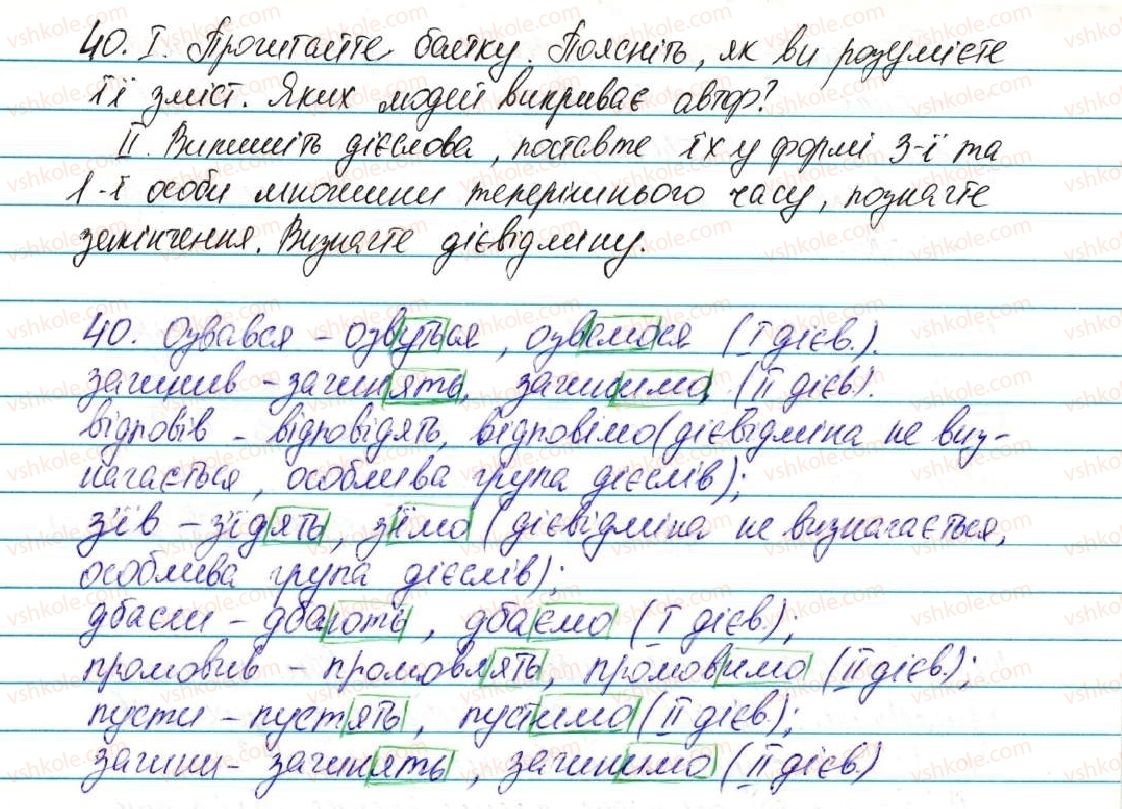 40. I. Прочитайте байку. Поясніть, як ви розумієте
її зміст. Яких людей викриває автор?
II. Випишіть дієслова, поставте їх у формі 3-ї та
1-ї особи множини теперішнього часу, позначте
закінчення. Визначте дієвідміну.
40. Озвався – озвуться, озвемося (I дієв.).
зачинив – зачинять, зачинимо (II дієв).
відповів – відповідять, відповімо (дієвідміна не виз-
начається, особлива група дієслів);
з'їв – з'їдять, з'їмо (дієвідміна не визначається,
особлива група дієслів);
дбаєш – дбають, дбаємо (I дієв.);
промовив – промовлять, промовимо (II дієв.);
пусти – пустять, пустимо (II дієв.);
зачини – зачинять, зачинимо (II дієв.)